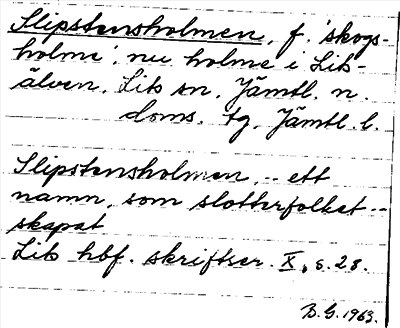 Slipstensholmen, f. 'skogs-
holme', nu holme i Lit-
älven. Lits sn, Jämtl. n.
doms. tg, Jämtl. l.
Slipstensholmen, -- ett
namn, som slotterfolket --
skapat
Lits hbf. skriftser. X, s. 28.
B.G. 1963.